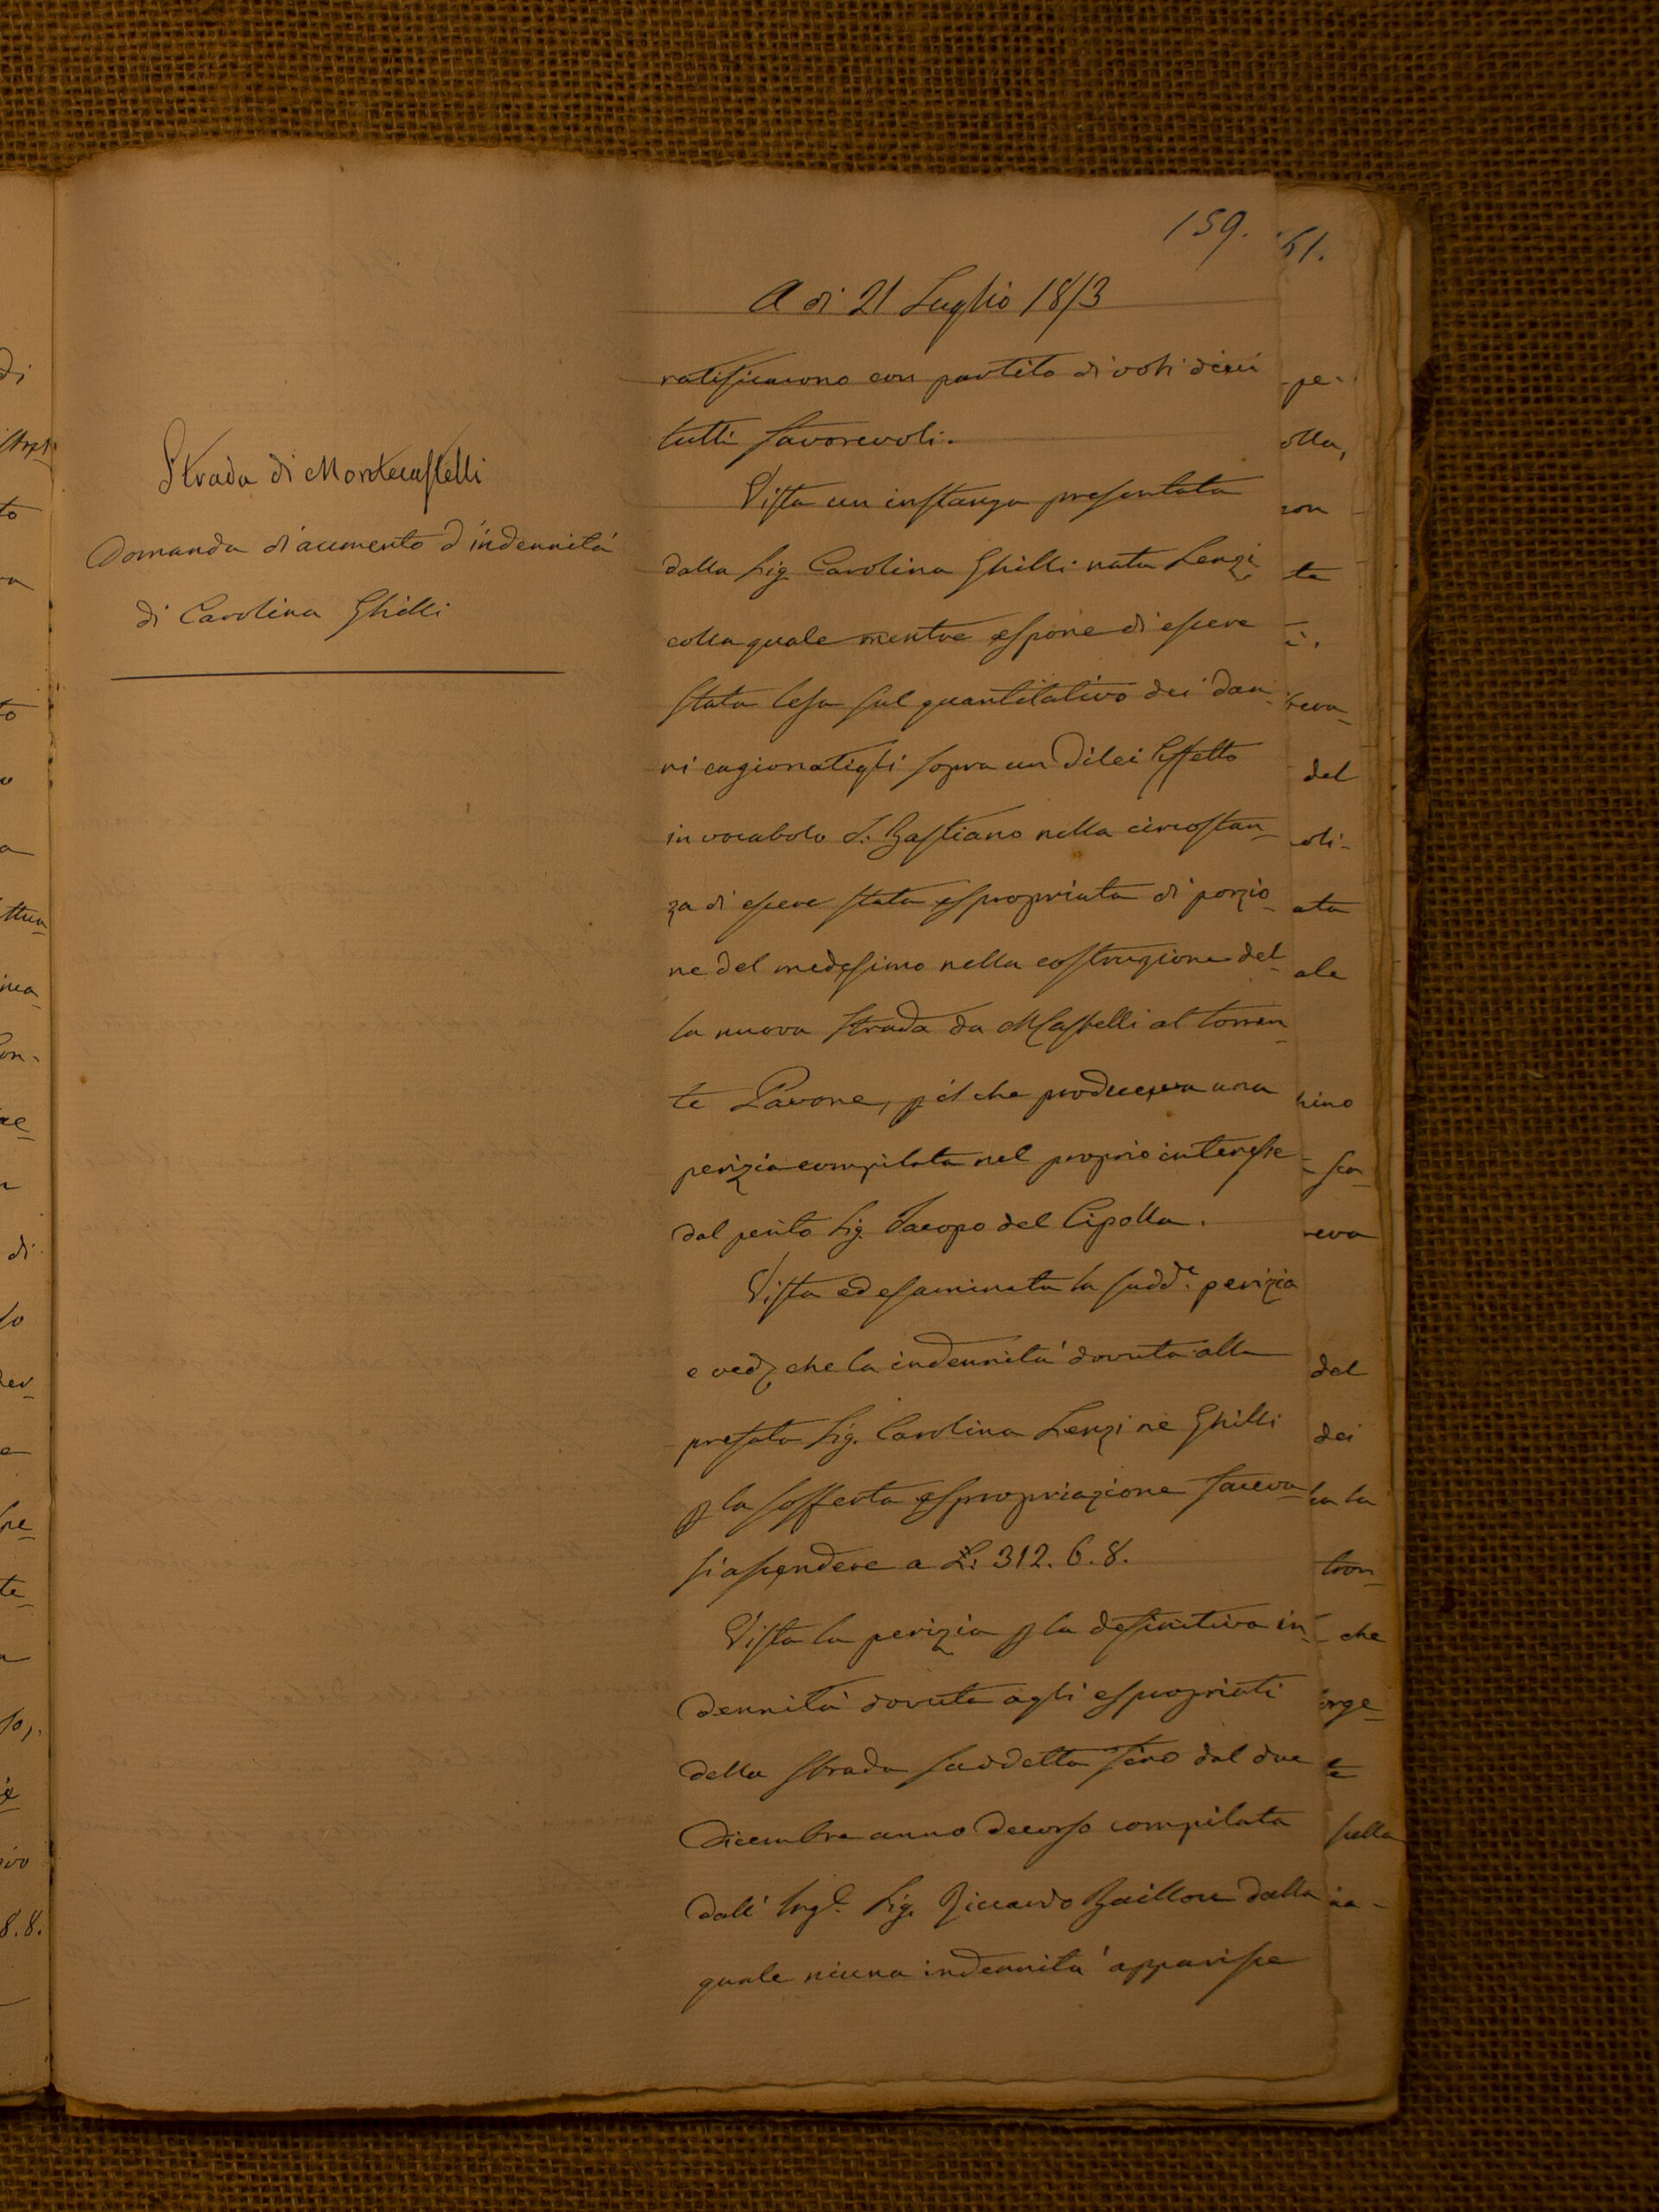 159.
61.
A di 21 Luglio 1853
ratificarono con partito di voti dieci
tutti favorevoli.
Strada di Montecastelli
Domanda di aumento d'indennità
di Carolina Ghilli
Vista un instanza presentata
dalla Sig. Carolina Ghilli nata Lenzi
colla quale mentre espone di essere
stata lesa sul quantitativo dei dan-
ni cagionatigli sopra un di lei Effetto
in vocabolo S. Bastiano nella circostan-
za di essere stata espropriata di porzio-
ne del medesimo nella costruzione del-
la nuova strada da MCastelli al torren-
te Pavone, p il che produceva una
perizia compilata nel proprio interesse
dal perito Sig. Jacopo del Cipolla.
Vista ed esaminata la sudd.ª perizia
e ved. che la indennità dovuta alla
prefata Sig. Carolina Lenzi ne Ghilli
p la sofferta espropriazione faceva-
si ascendere a L: 312. 6. 8.
Vista la perizia p la definitiva in-
dennità dovuta agli espropriati
della strada suddetta sino dal due
Dicembre anno decorso compilata
dall' Ing.e Sig. Riccardo Baillou dalla
quale niuna indennità apparisce